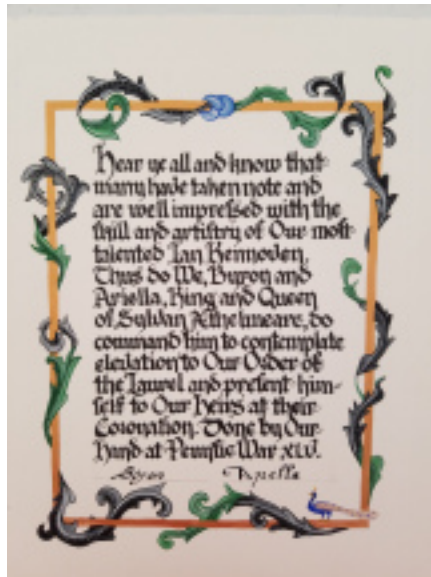 Hear ye all and know that
many have taken note and
are well impressed with the
skill and artistry of Our most
talented Ian Kennoven.
Thus do We, Byron and
Ariella, King and Queen
of Sylvan Æthelmearc, do
command him to contemplate
elevation to Our Order of
the Laurel and present him-
self to Our Heirs at their
Coronation. Done by Our
Hand at Pennsic War XLV.
Byron Ariella